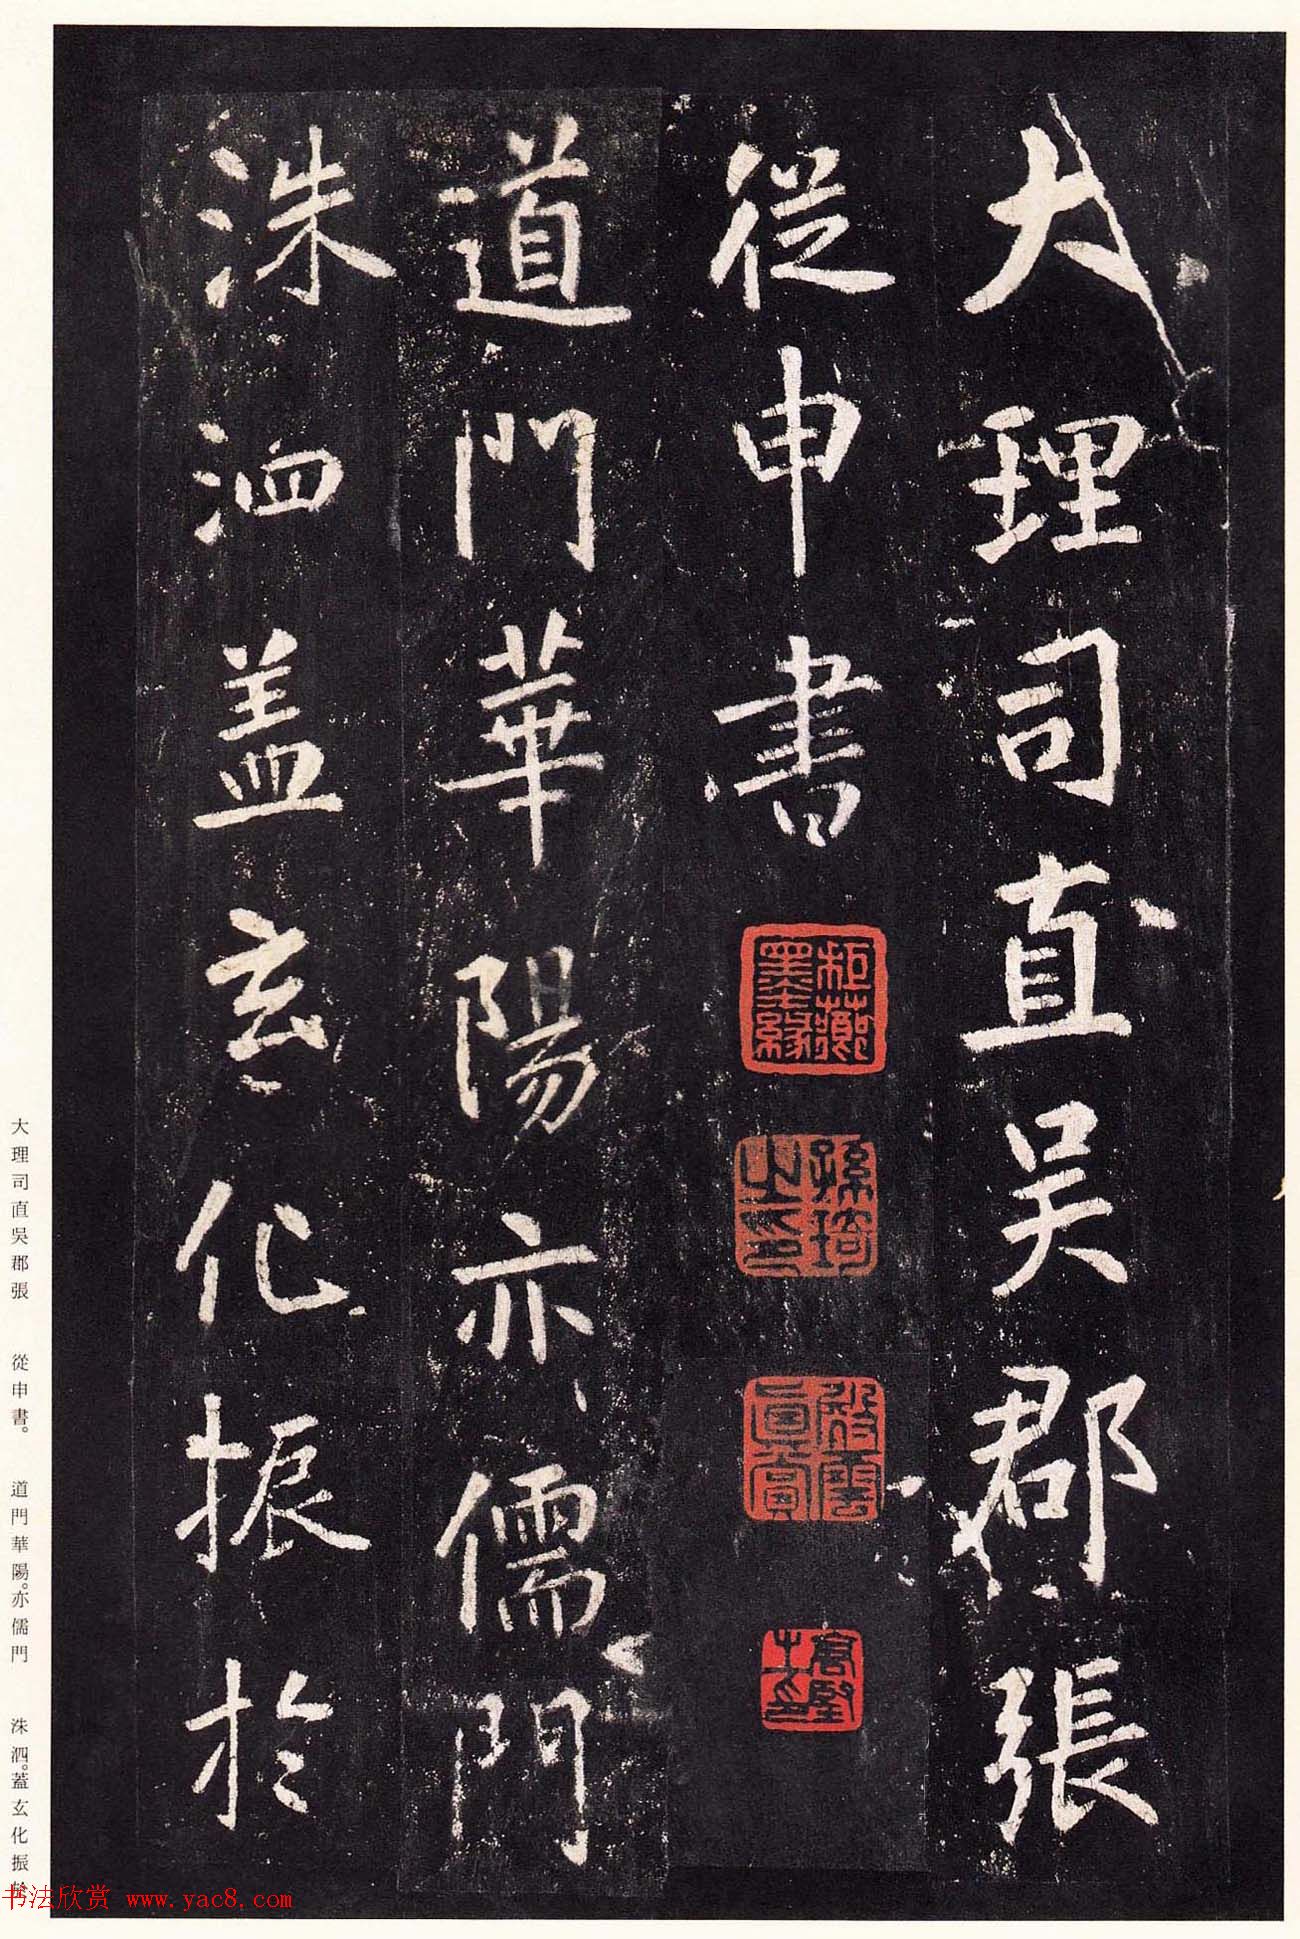 大理司直吳郡張
從申書
道門華陽亦儒門
洙泗盖玄化振於
孫琦
之印
真賞
大理司直吳郡張 從申書。 道門華陽。亦儒門 洙泗。蓋玄化振於
书法欣赏 www.yac8.com